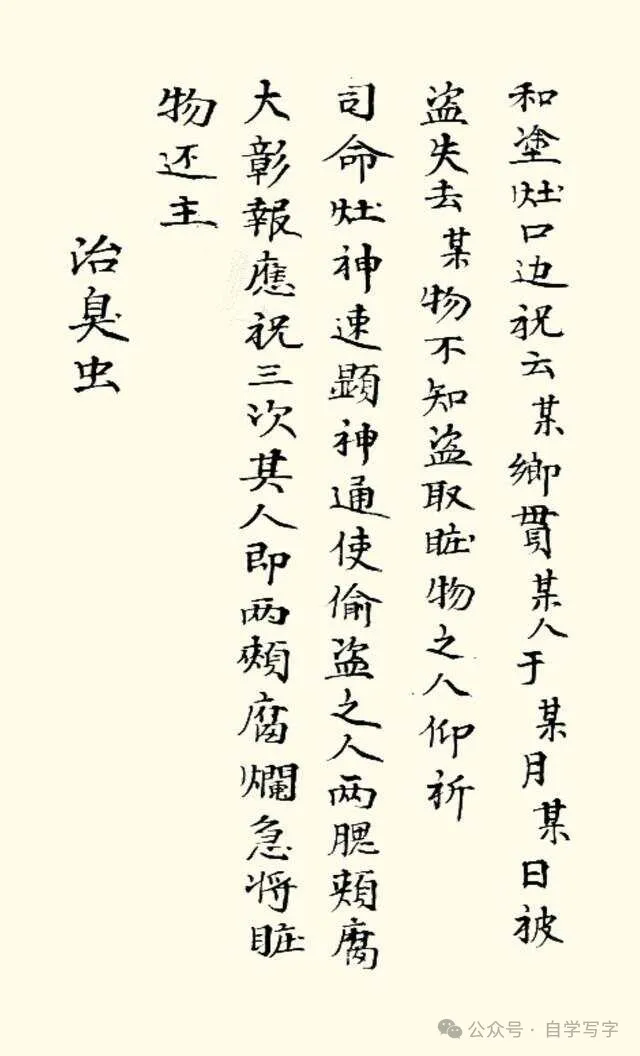 和塗灶口边祝云某鄉貫某人于某月某日被
盗失去某物不知盗取賍物之人仰祈
司命灶神速顕神通使偷盗之人两腮頰腐
大彰報應祝三次其人即两頰腐爛急将賍
物还主
治臭虫
公众号·自学写字